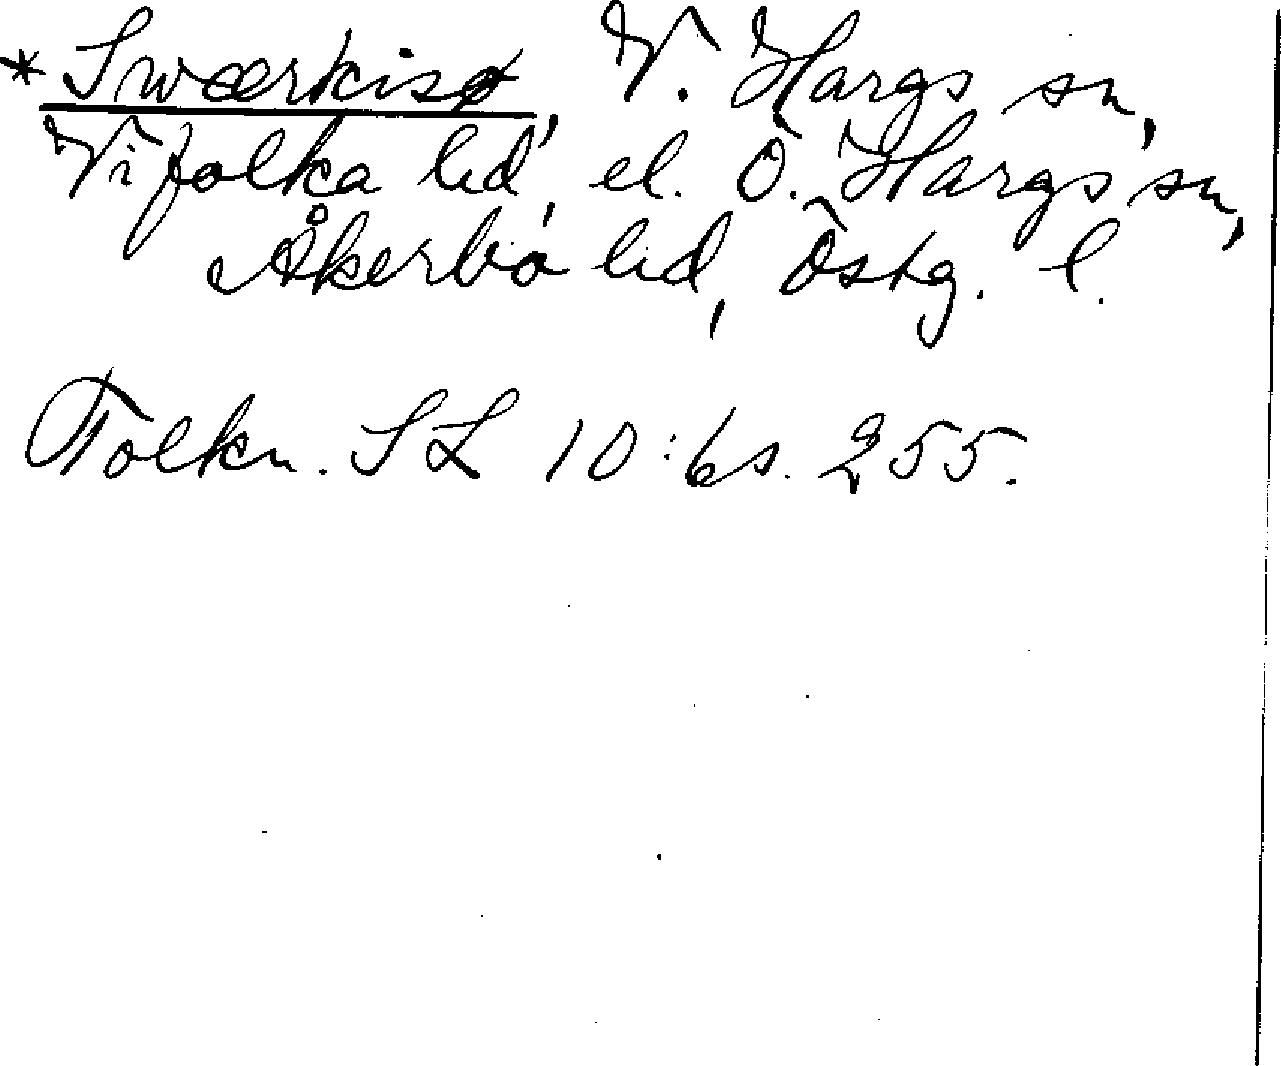 * Swærkisø, V. Hargs sn,
Vifolka hd, el. Ö. Hargs sn,
Åkerbo hd, Östg. l.
Tolkn. SL 10:6 s. 255.